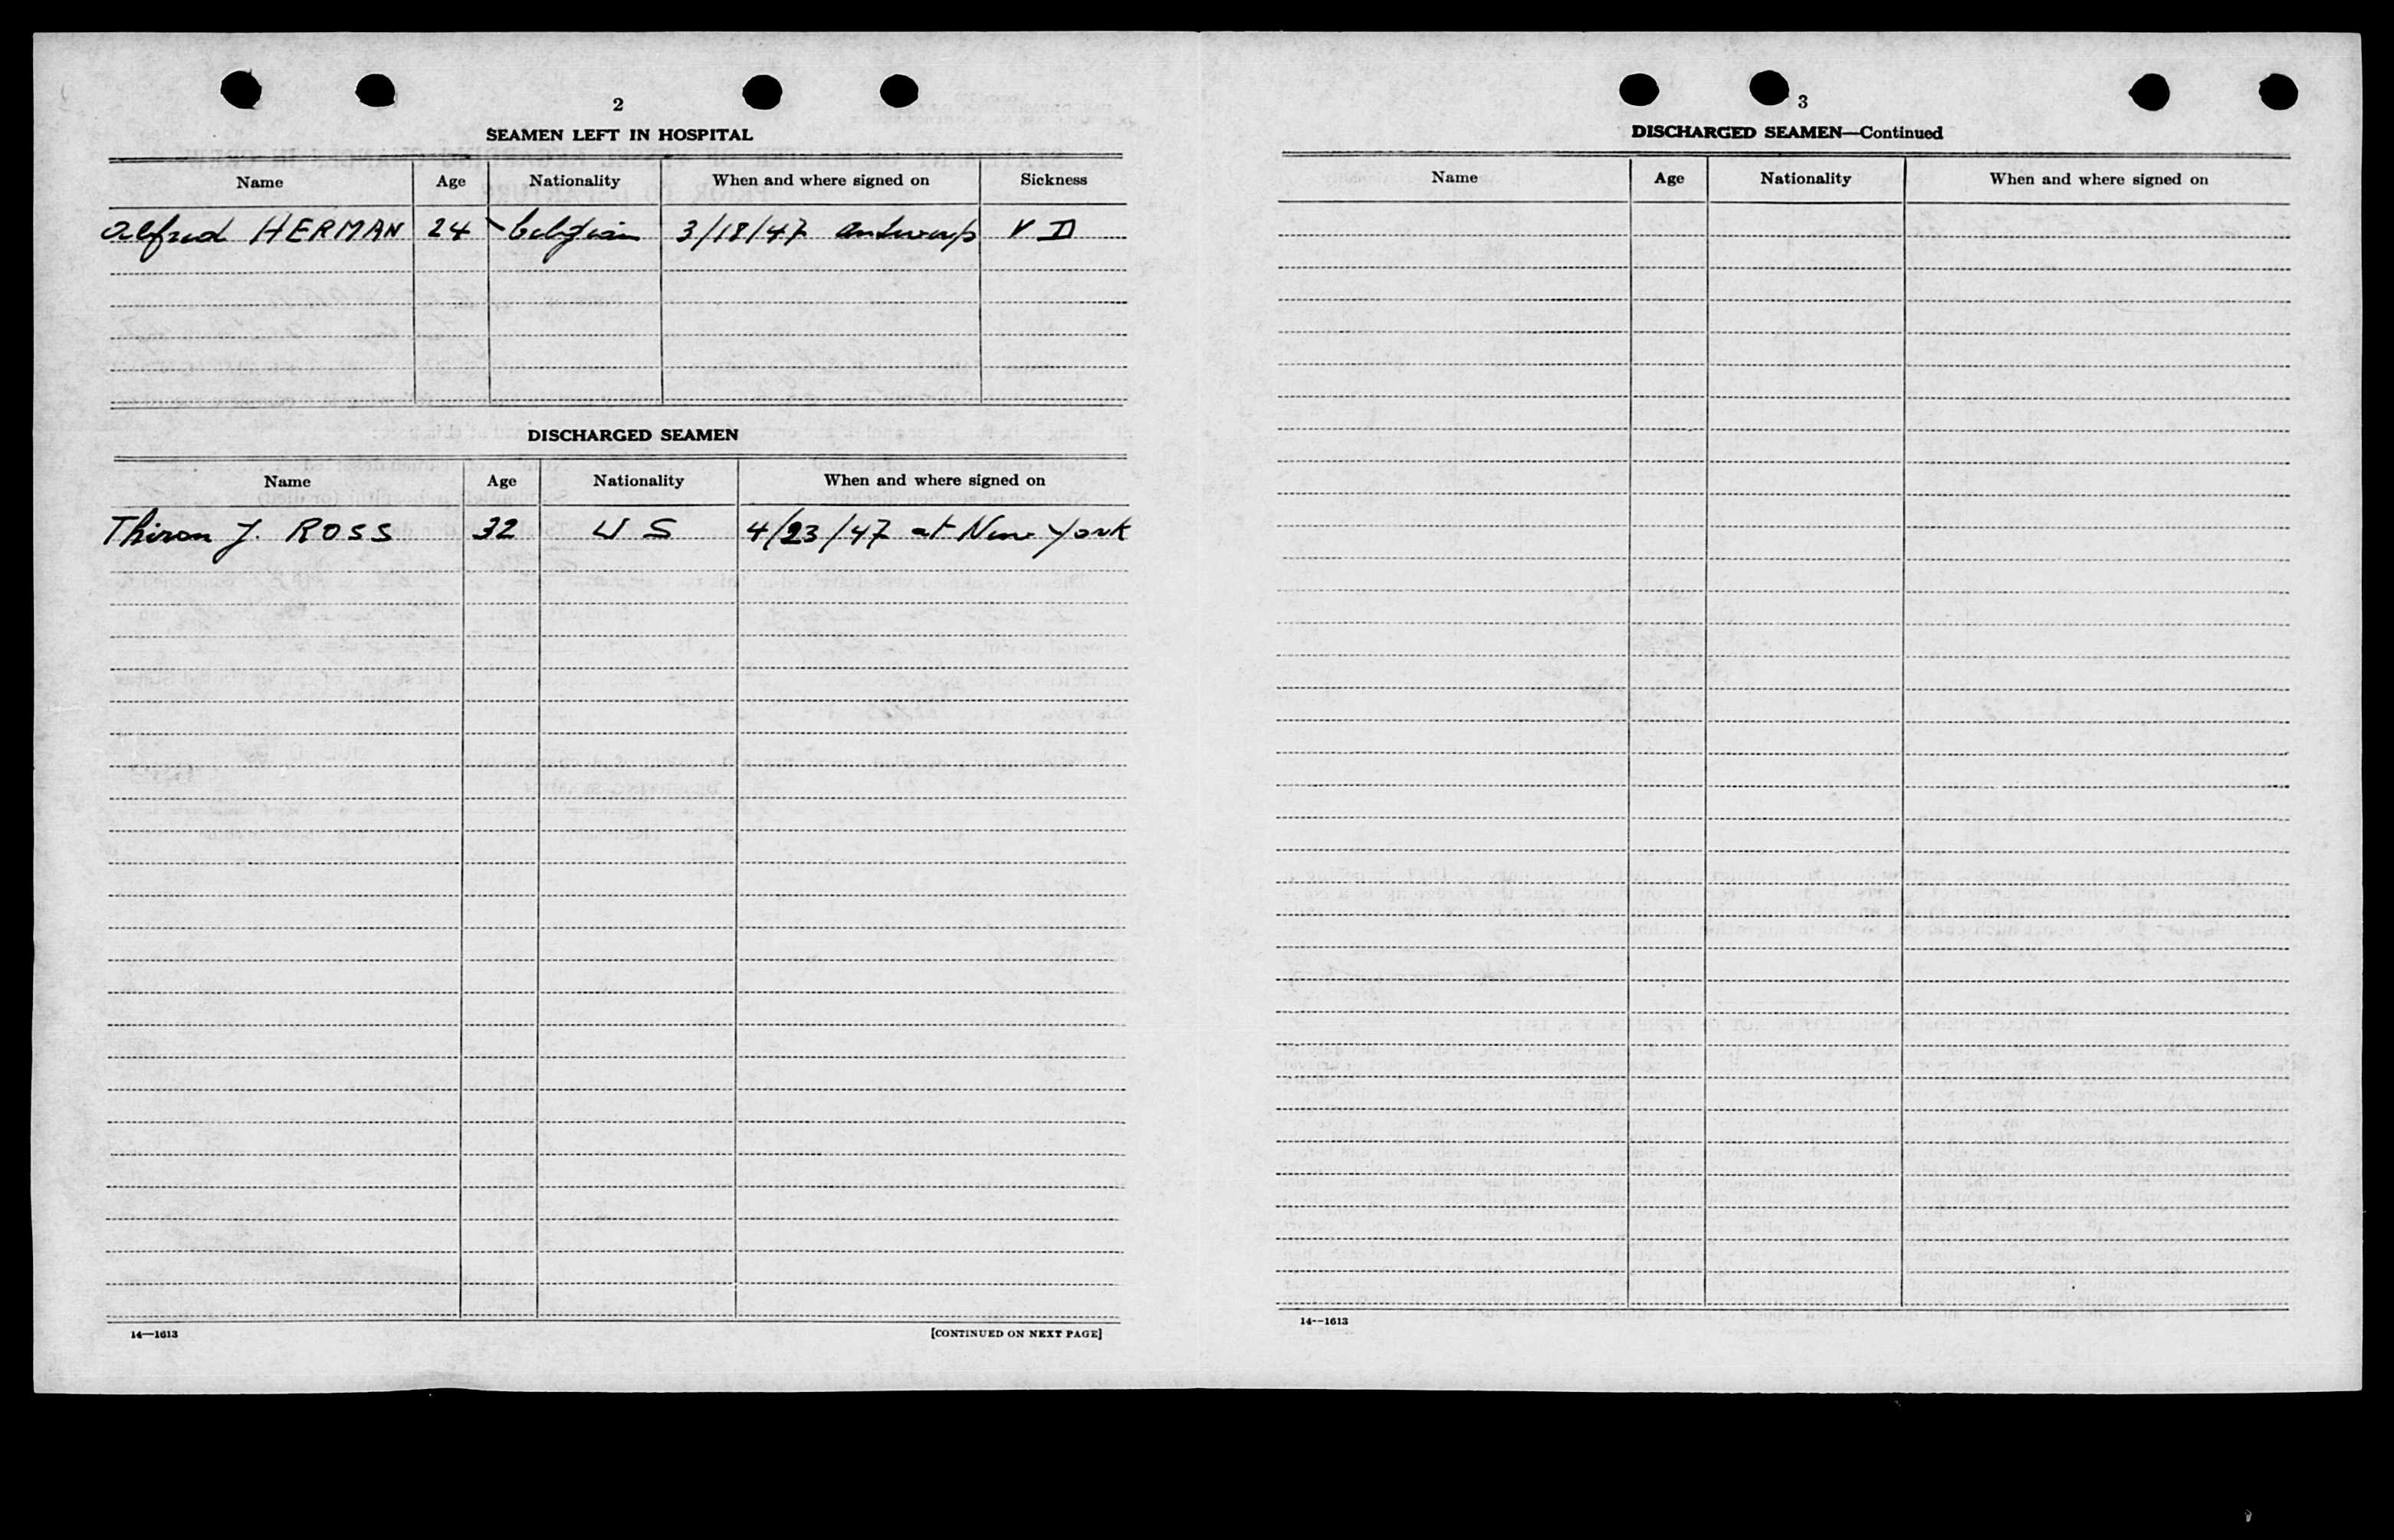 2
SEAMEN LEFT IN HOSPITAL
Name Age Nationality When and where signed on Sickness
Alfred HERMAN 24 belgian 3/18/47 Antwerp V D
DISCHARGED SEAMEN
Name Age Nationality When and where signed on
Thiron J. ROSS 32 U S 4/23/47 at New York
14—1613 [CONTINUED ON NEXT PAGE]
3
DISCHARGED SEAMEN—Continued
Name Age Nationality When and where signed on
14--1613